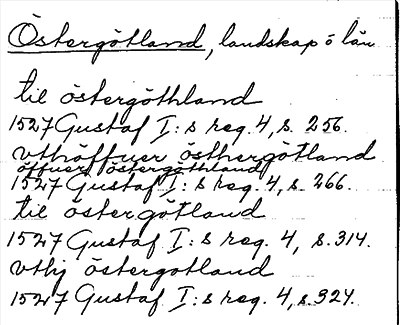 Östergötland, landskap o län
til östergöthland
1527 Gustaf I:s reg. 4, s. 256.
vthöffuer östhergötland
öffuer östergöthland
1527 Gustaf I:s reg. 4, s. 266.
til östergötland
1527 Gustaf I:s reg. 4, s. 314.
vthj östergotland
1527 Gustaf I:s reg. 4, s. 324.